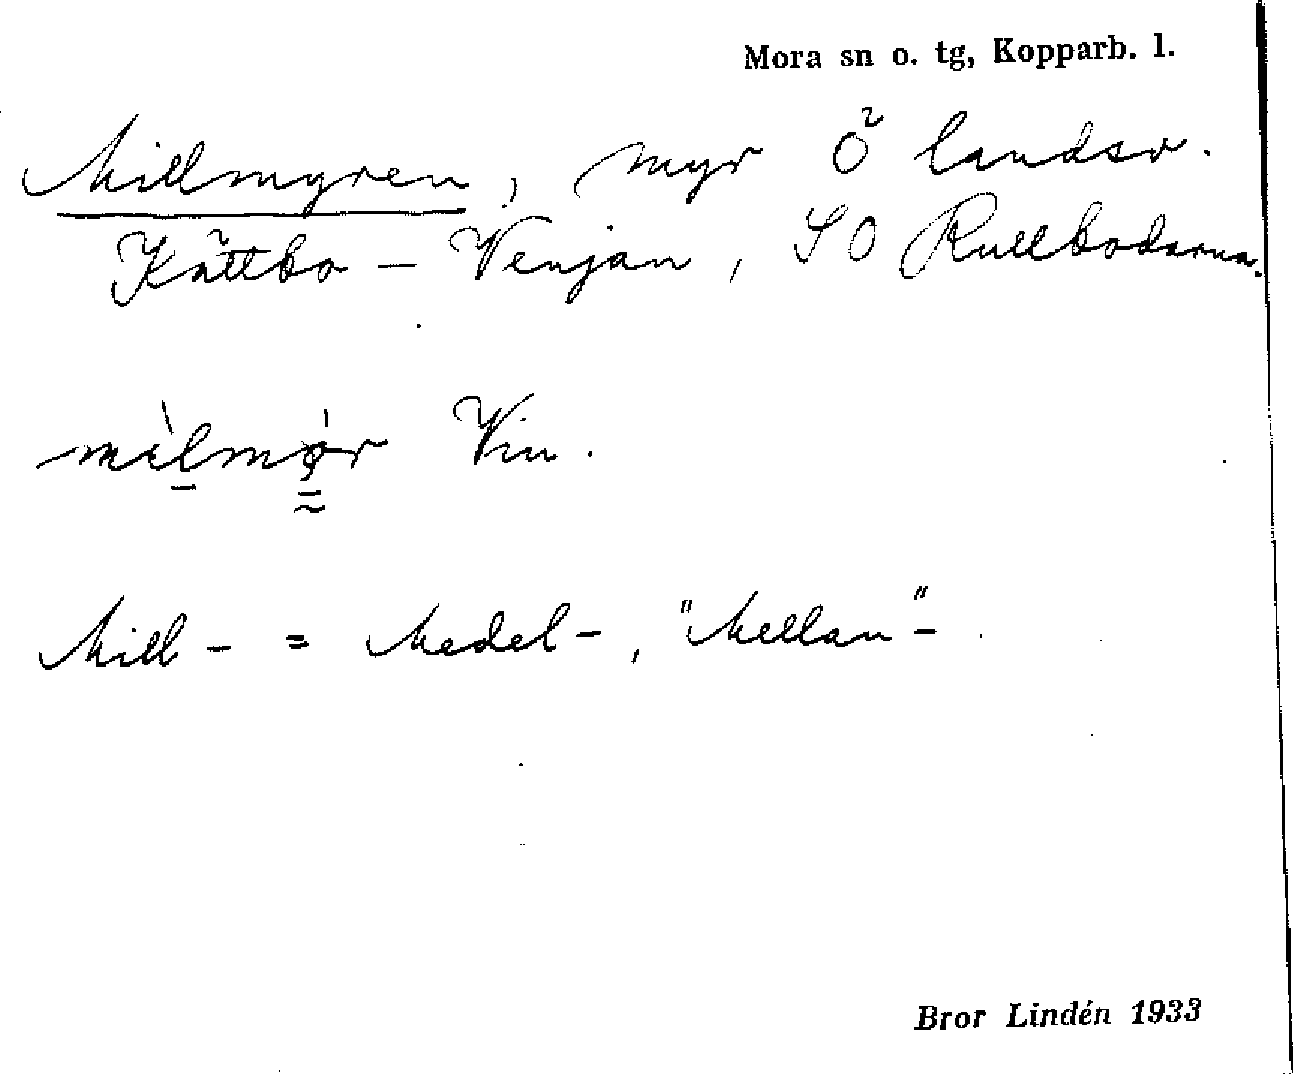 Mora sn o. tg, Kopparb. l.
Millmyren, myr Ö landsv.
Kättbo – Venjan, SO Rullbodarna.
mìlmø̀r Vin.
Mill- = Medel-, "Mellan"-
Bror Lindén 1933